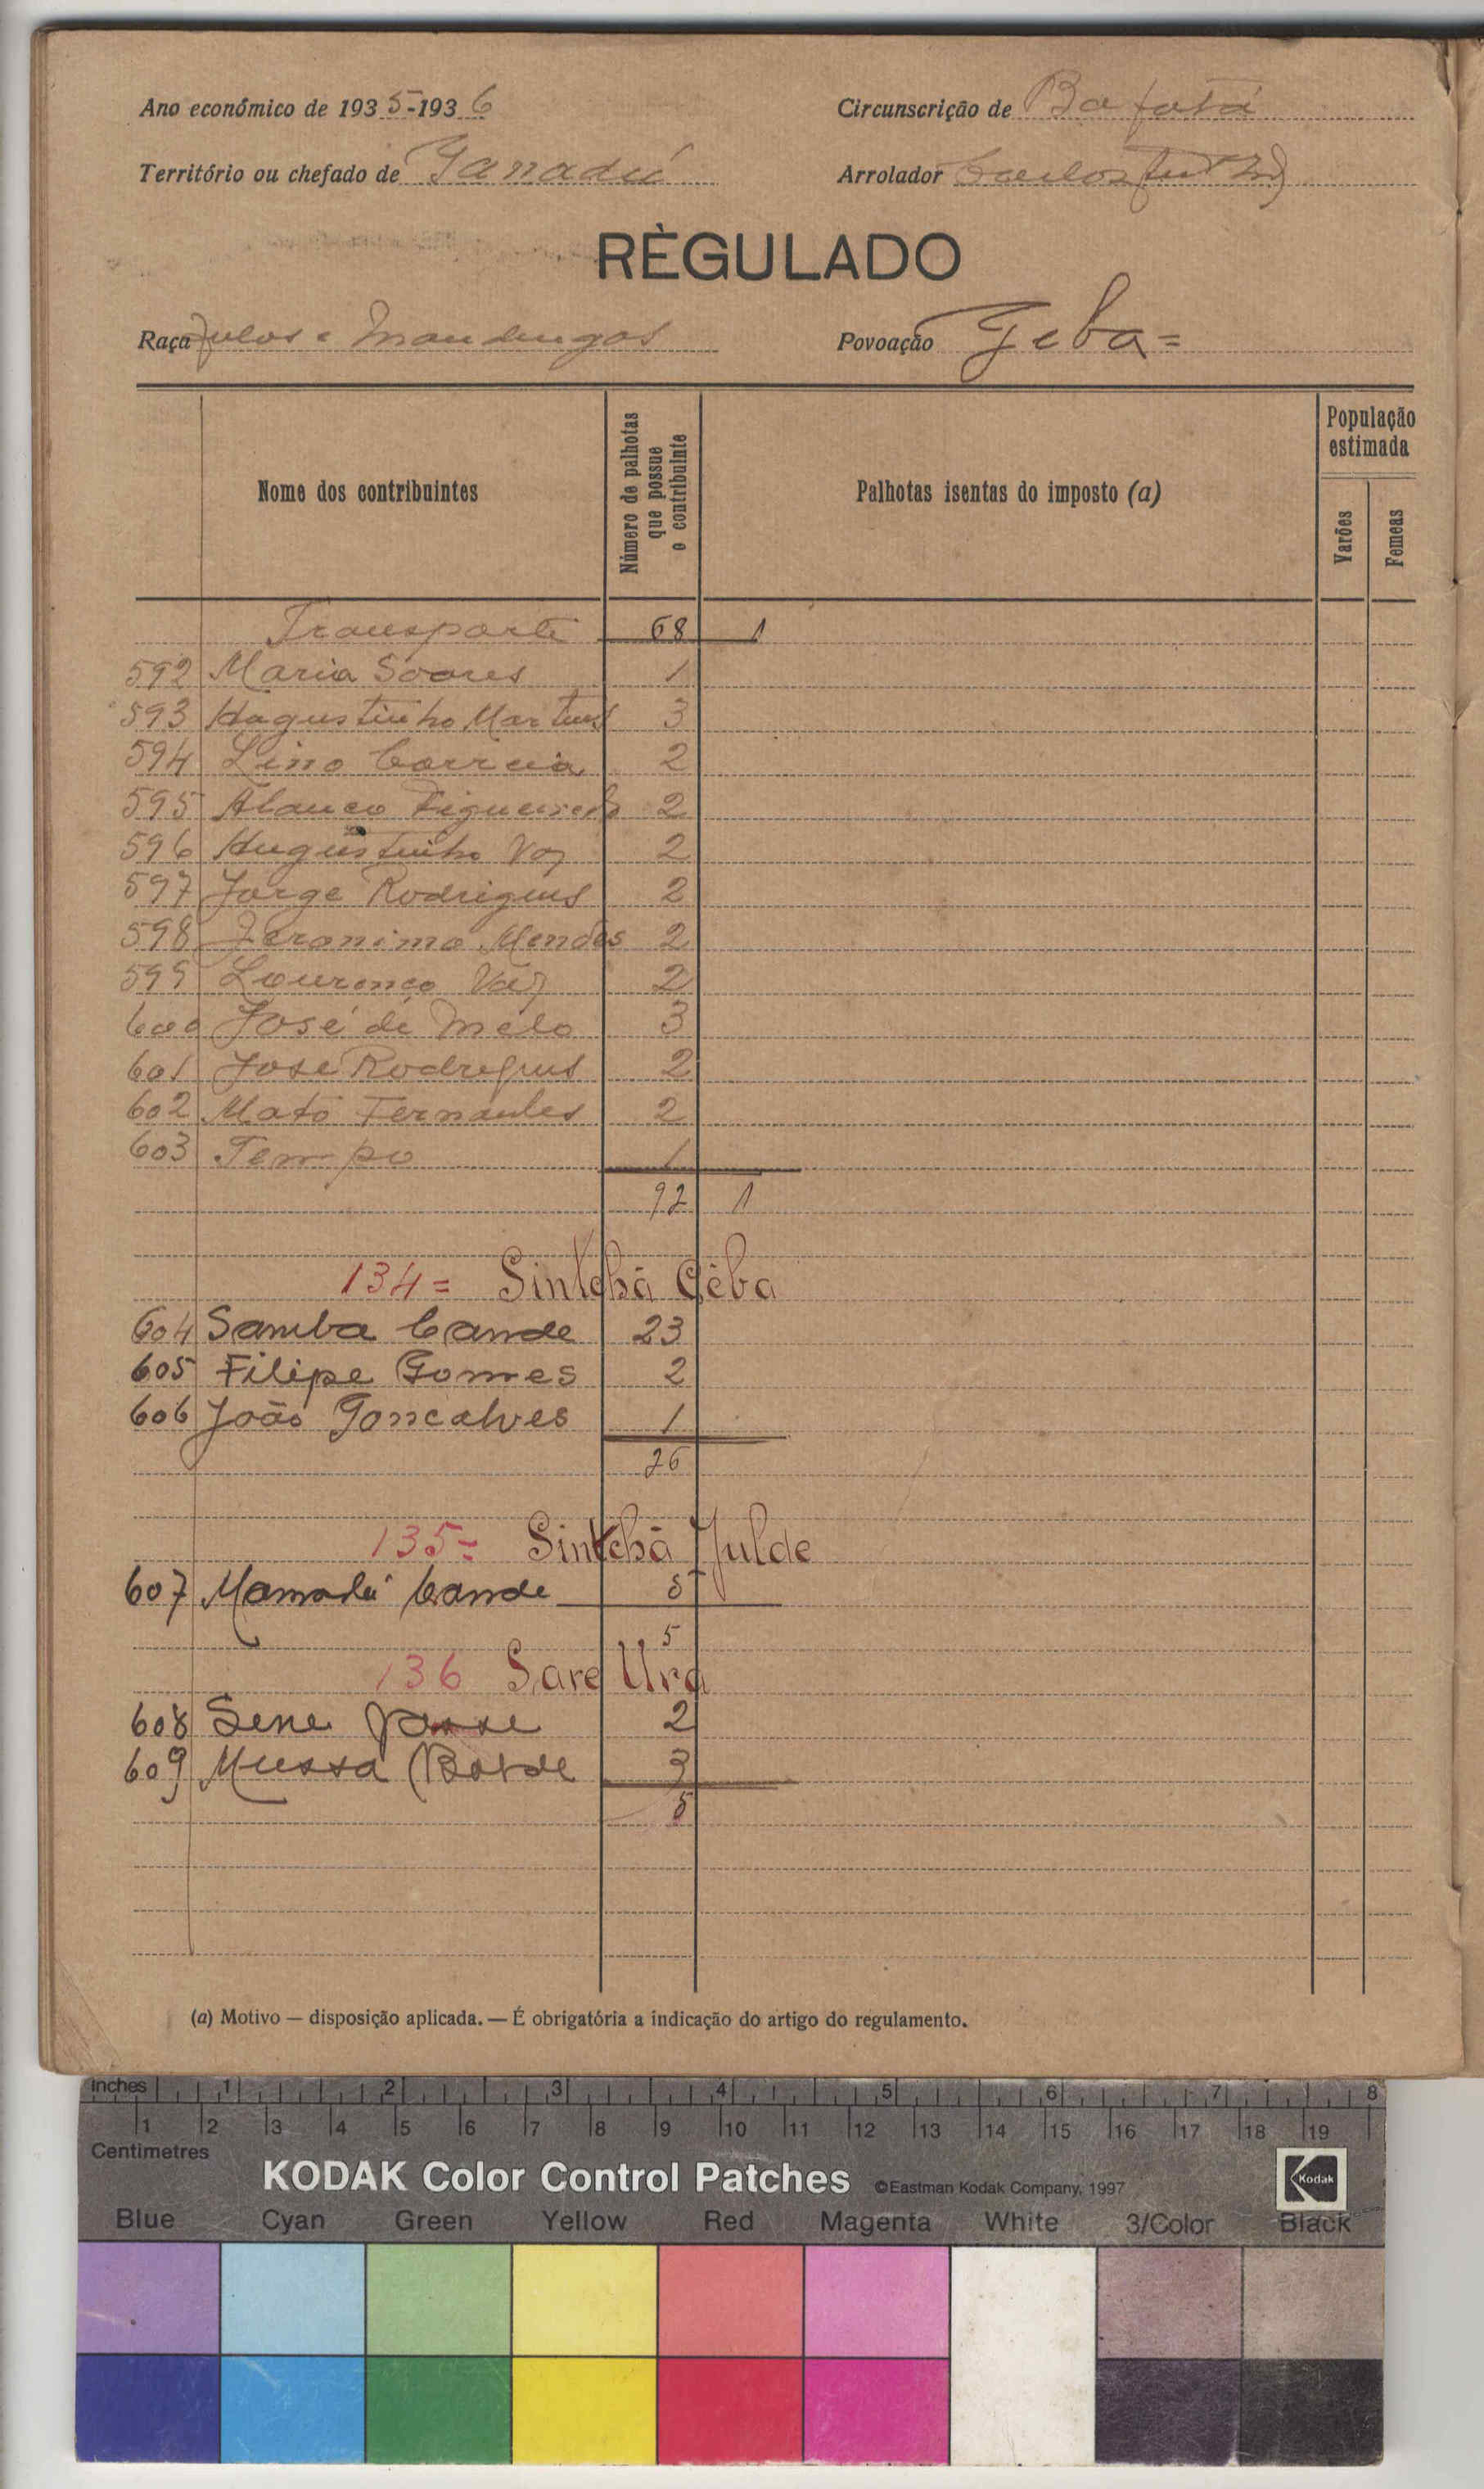 Ano económico de 1935-1936
Circunscrição de Bafatá
Território ou chefado de Ganadú
Arrolador Carlos
RÈGULADO
Raça Fulos e Mandingas
Povoação Geba=
Nome dos contribuintes
Número de palhotas que possue o contribuinte
Palhotas isentas do imposto (a)
População estimada
Varões
Femeas
Transporte 68 1
592 Maria Soares 1
593 Hagustinho Martins 3
594 Lino Correia 2
595 Figueiredo 2
596 Hugustinho Vaz 2
597 Jorge Rodrigues 2
598 Jeronimo Mendes 2
599 Lourenço Vaz 2
600 José de Melo 3
601 José Rodrigues 2
602 Mato Fernandes 2
603 Tempo 1
92 1
134= Sintchã Gêba
604 Samba Cande 23
605 Filipe Gomes 2
606 João Goncalves 1
26
135= Sintchã Julde
607 Mamadú Cande 5
5
136 Sare Ura
608 Sene 2
609 Mussa Balde 3
5
(a) Motivo — disposição aplicada. — É obrigatória a indicação do artigo do regulamento.
Inches 1 2 3 4 5 6 7 8
1 2 3 4 5 6 7 8 9 10 11 12 13 14 15 16 17 18 19
Centimetres
KODAK Color Control Patches ©Eastman Kodak Company, 1997 Kodak
Blue Cyan Green Yellow Red Magenta White 3/Color Black